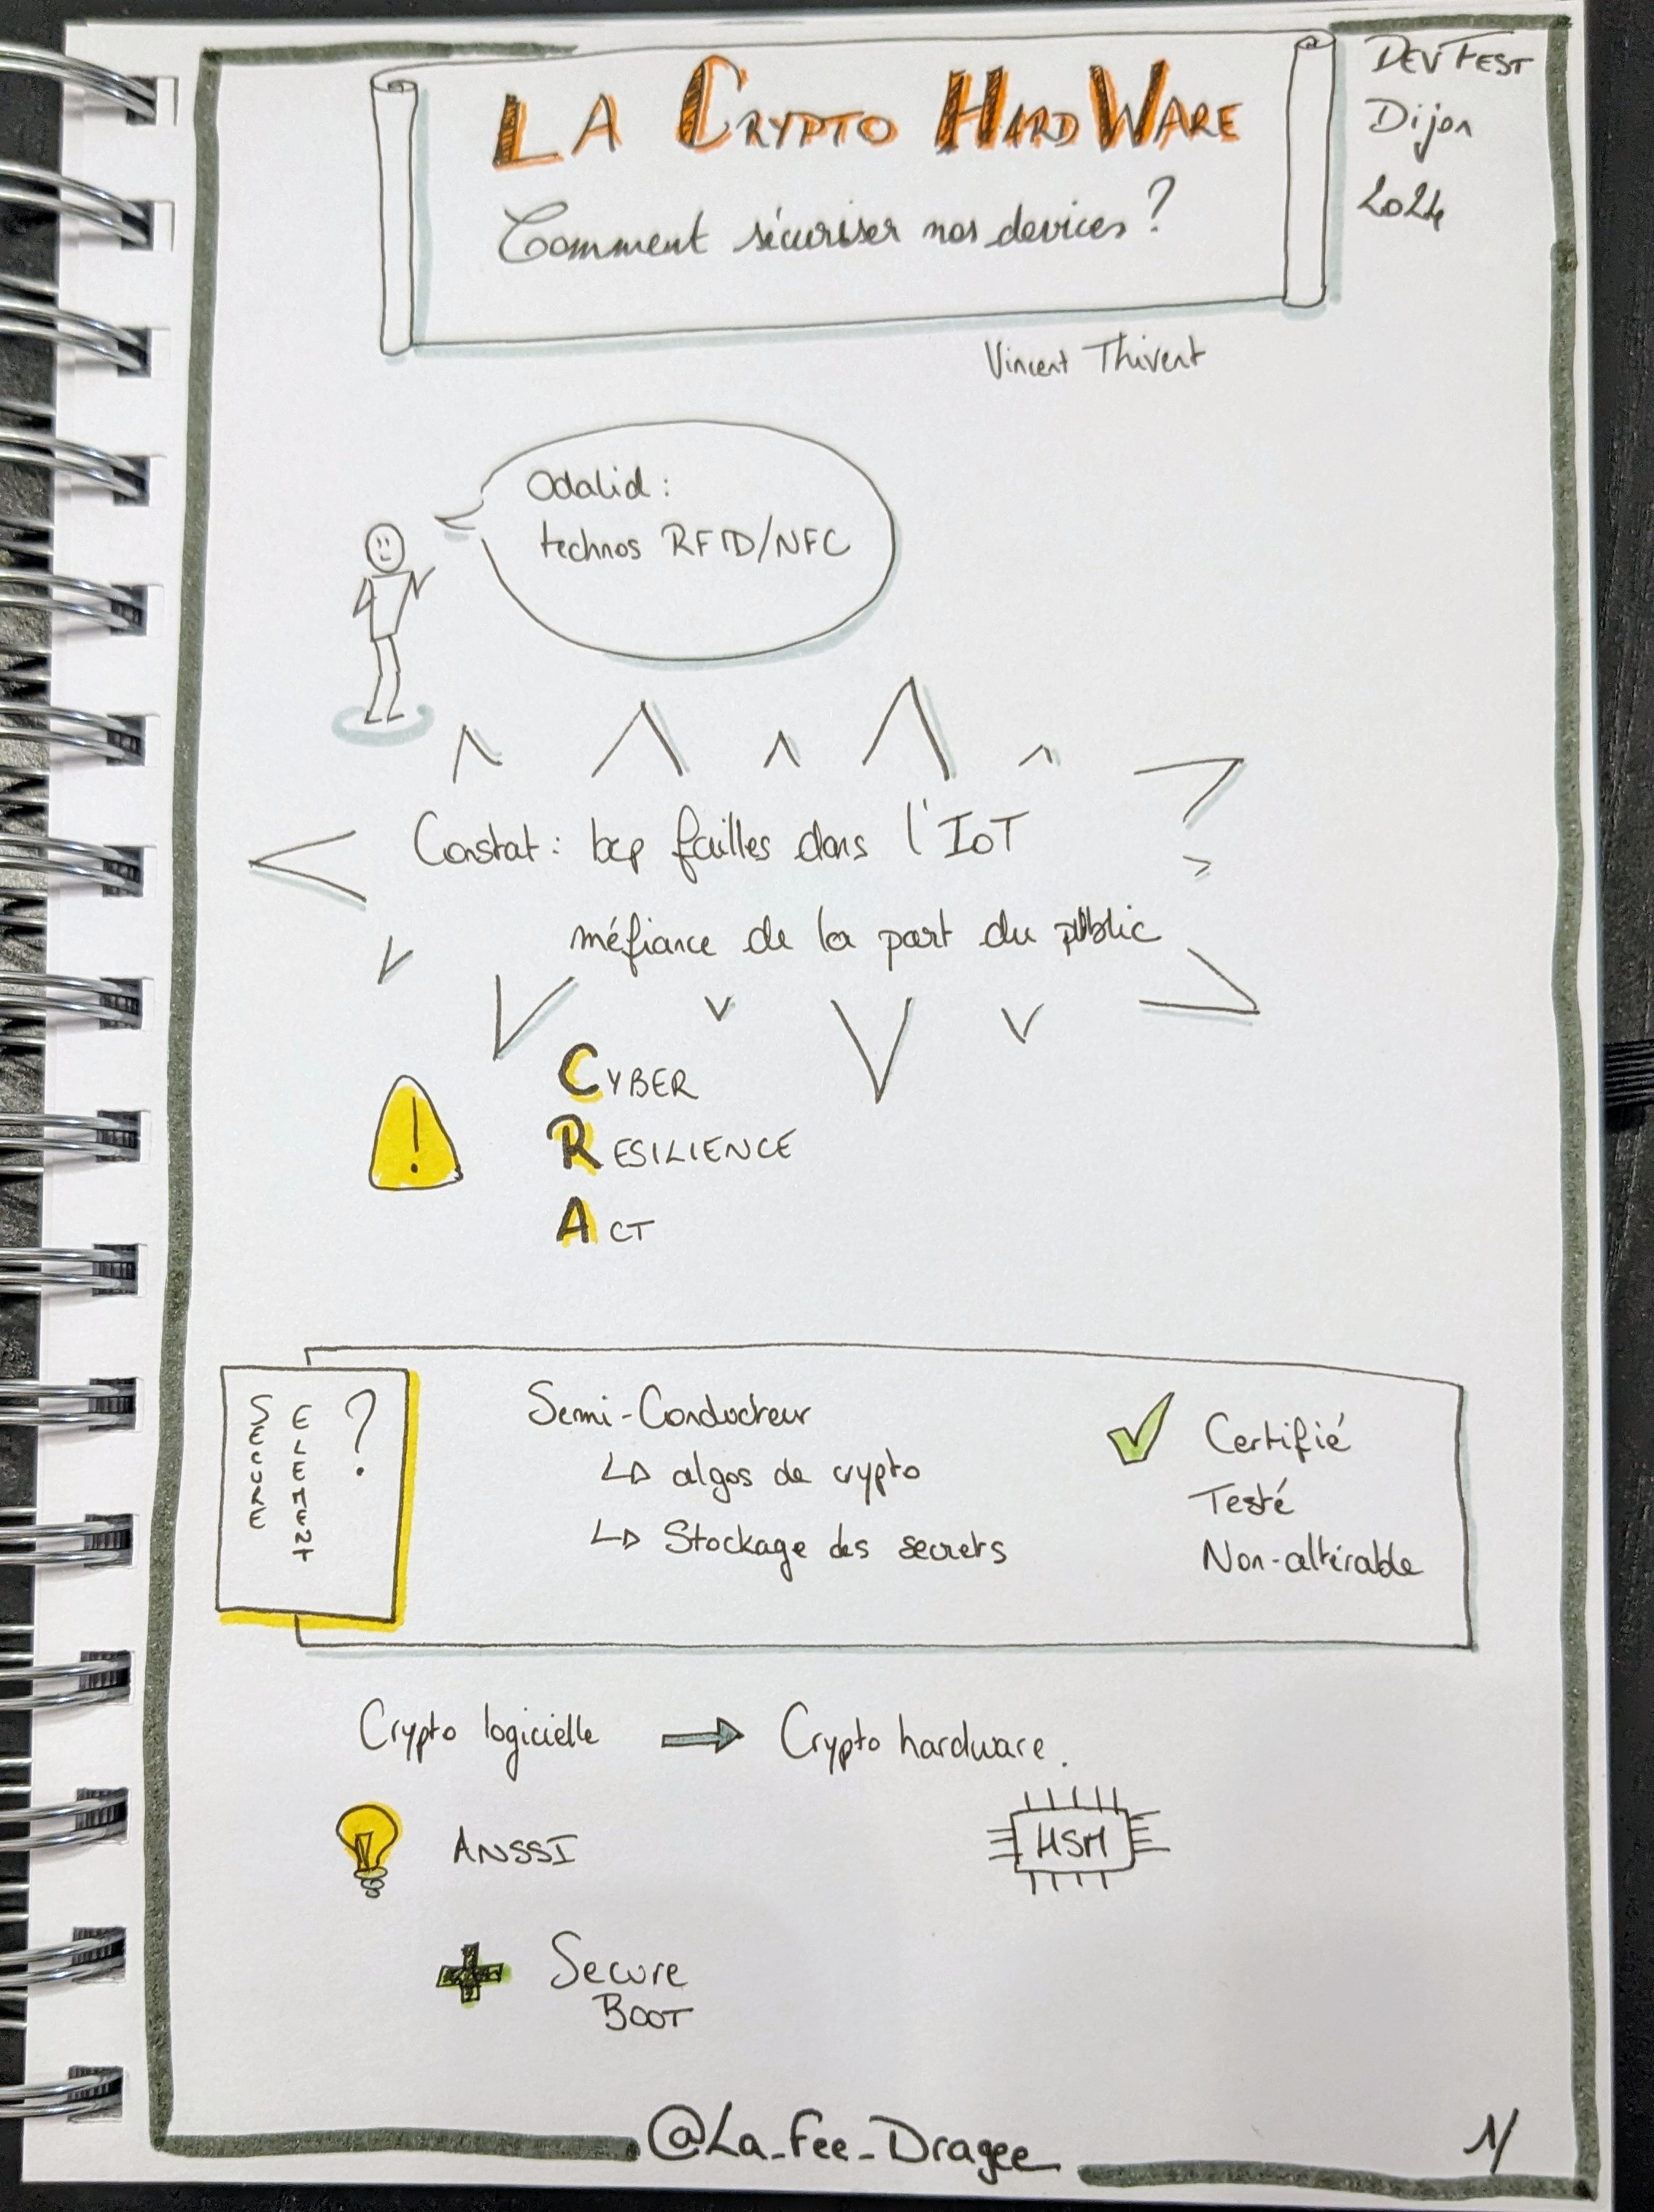 LA CRYPTO HARDWARE
Comment sécuriser nos devices ?
DEVFEST
Dijon
2024
Vincent Thivent
Odalid :
technos RFID/NFC
Constat : bcp failles dans l'IoT
méfiance de la part du public
!
CYBER
RESILIENCE
ACT
SECURE
ELEMENT
?
Semi-Conducteur
algos de crypto
Stockage des secrets
Certifié
Testé
Non-altérable
Crypto logicielle → Crypto hardware.
ANSSI
HSM
+ Secure
BOOT
@La_Fee_Dragee_
1/